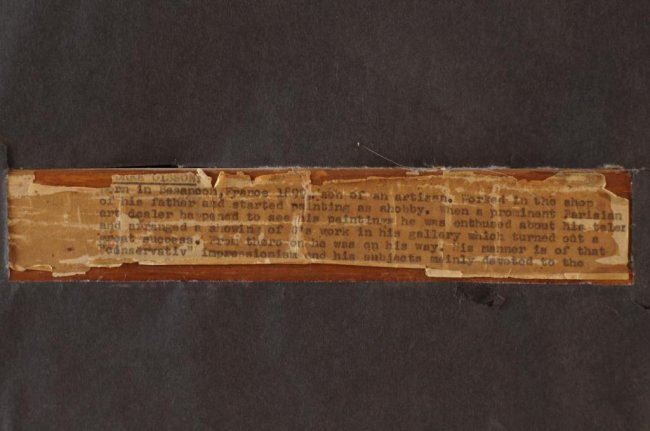 GISSON
Born in Besancon, France 189 , son of an artisan. Worked in the shop
of his father and started painting as ahobby. When a prominent Parisian
art dealer happened to see his paintings he was enthused about his talent
and arranged a showing of his work in his gallery which turned out a
great success. From there on he was on his way. His manner is of that
"conservativ" impressionism and his subjects mainly devoted to the